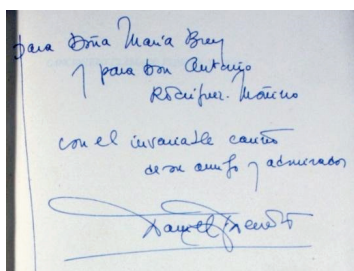 para Doña María Brey
y para Don Antonio
Rodríguez-Moñino
con el invariable cariño
de su amigo y admirador
Daniel